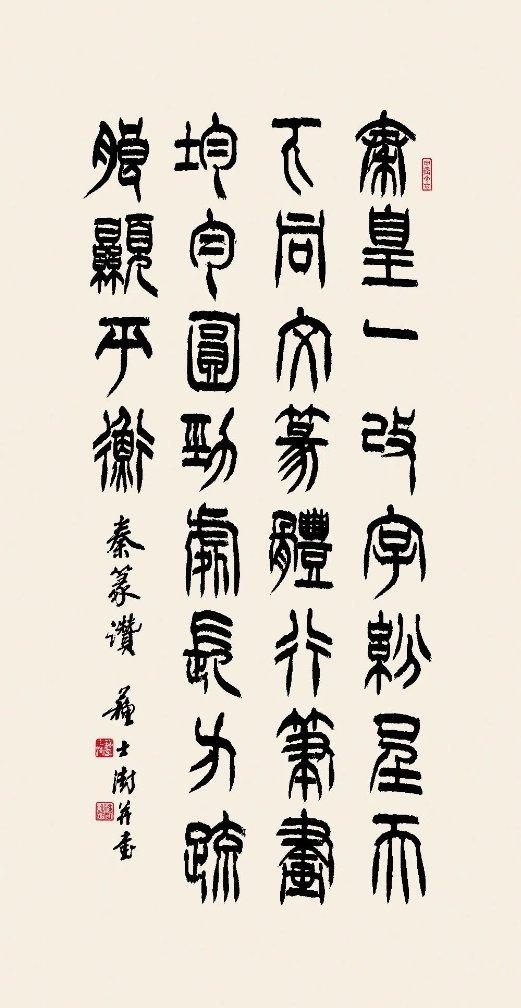 秦皇一改字呈天
下同文篆體行筆畫
均勻圓勁處長方疏
朗顯平衡 秦篆讚 蘇士澍并書